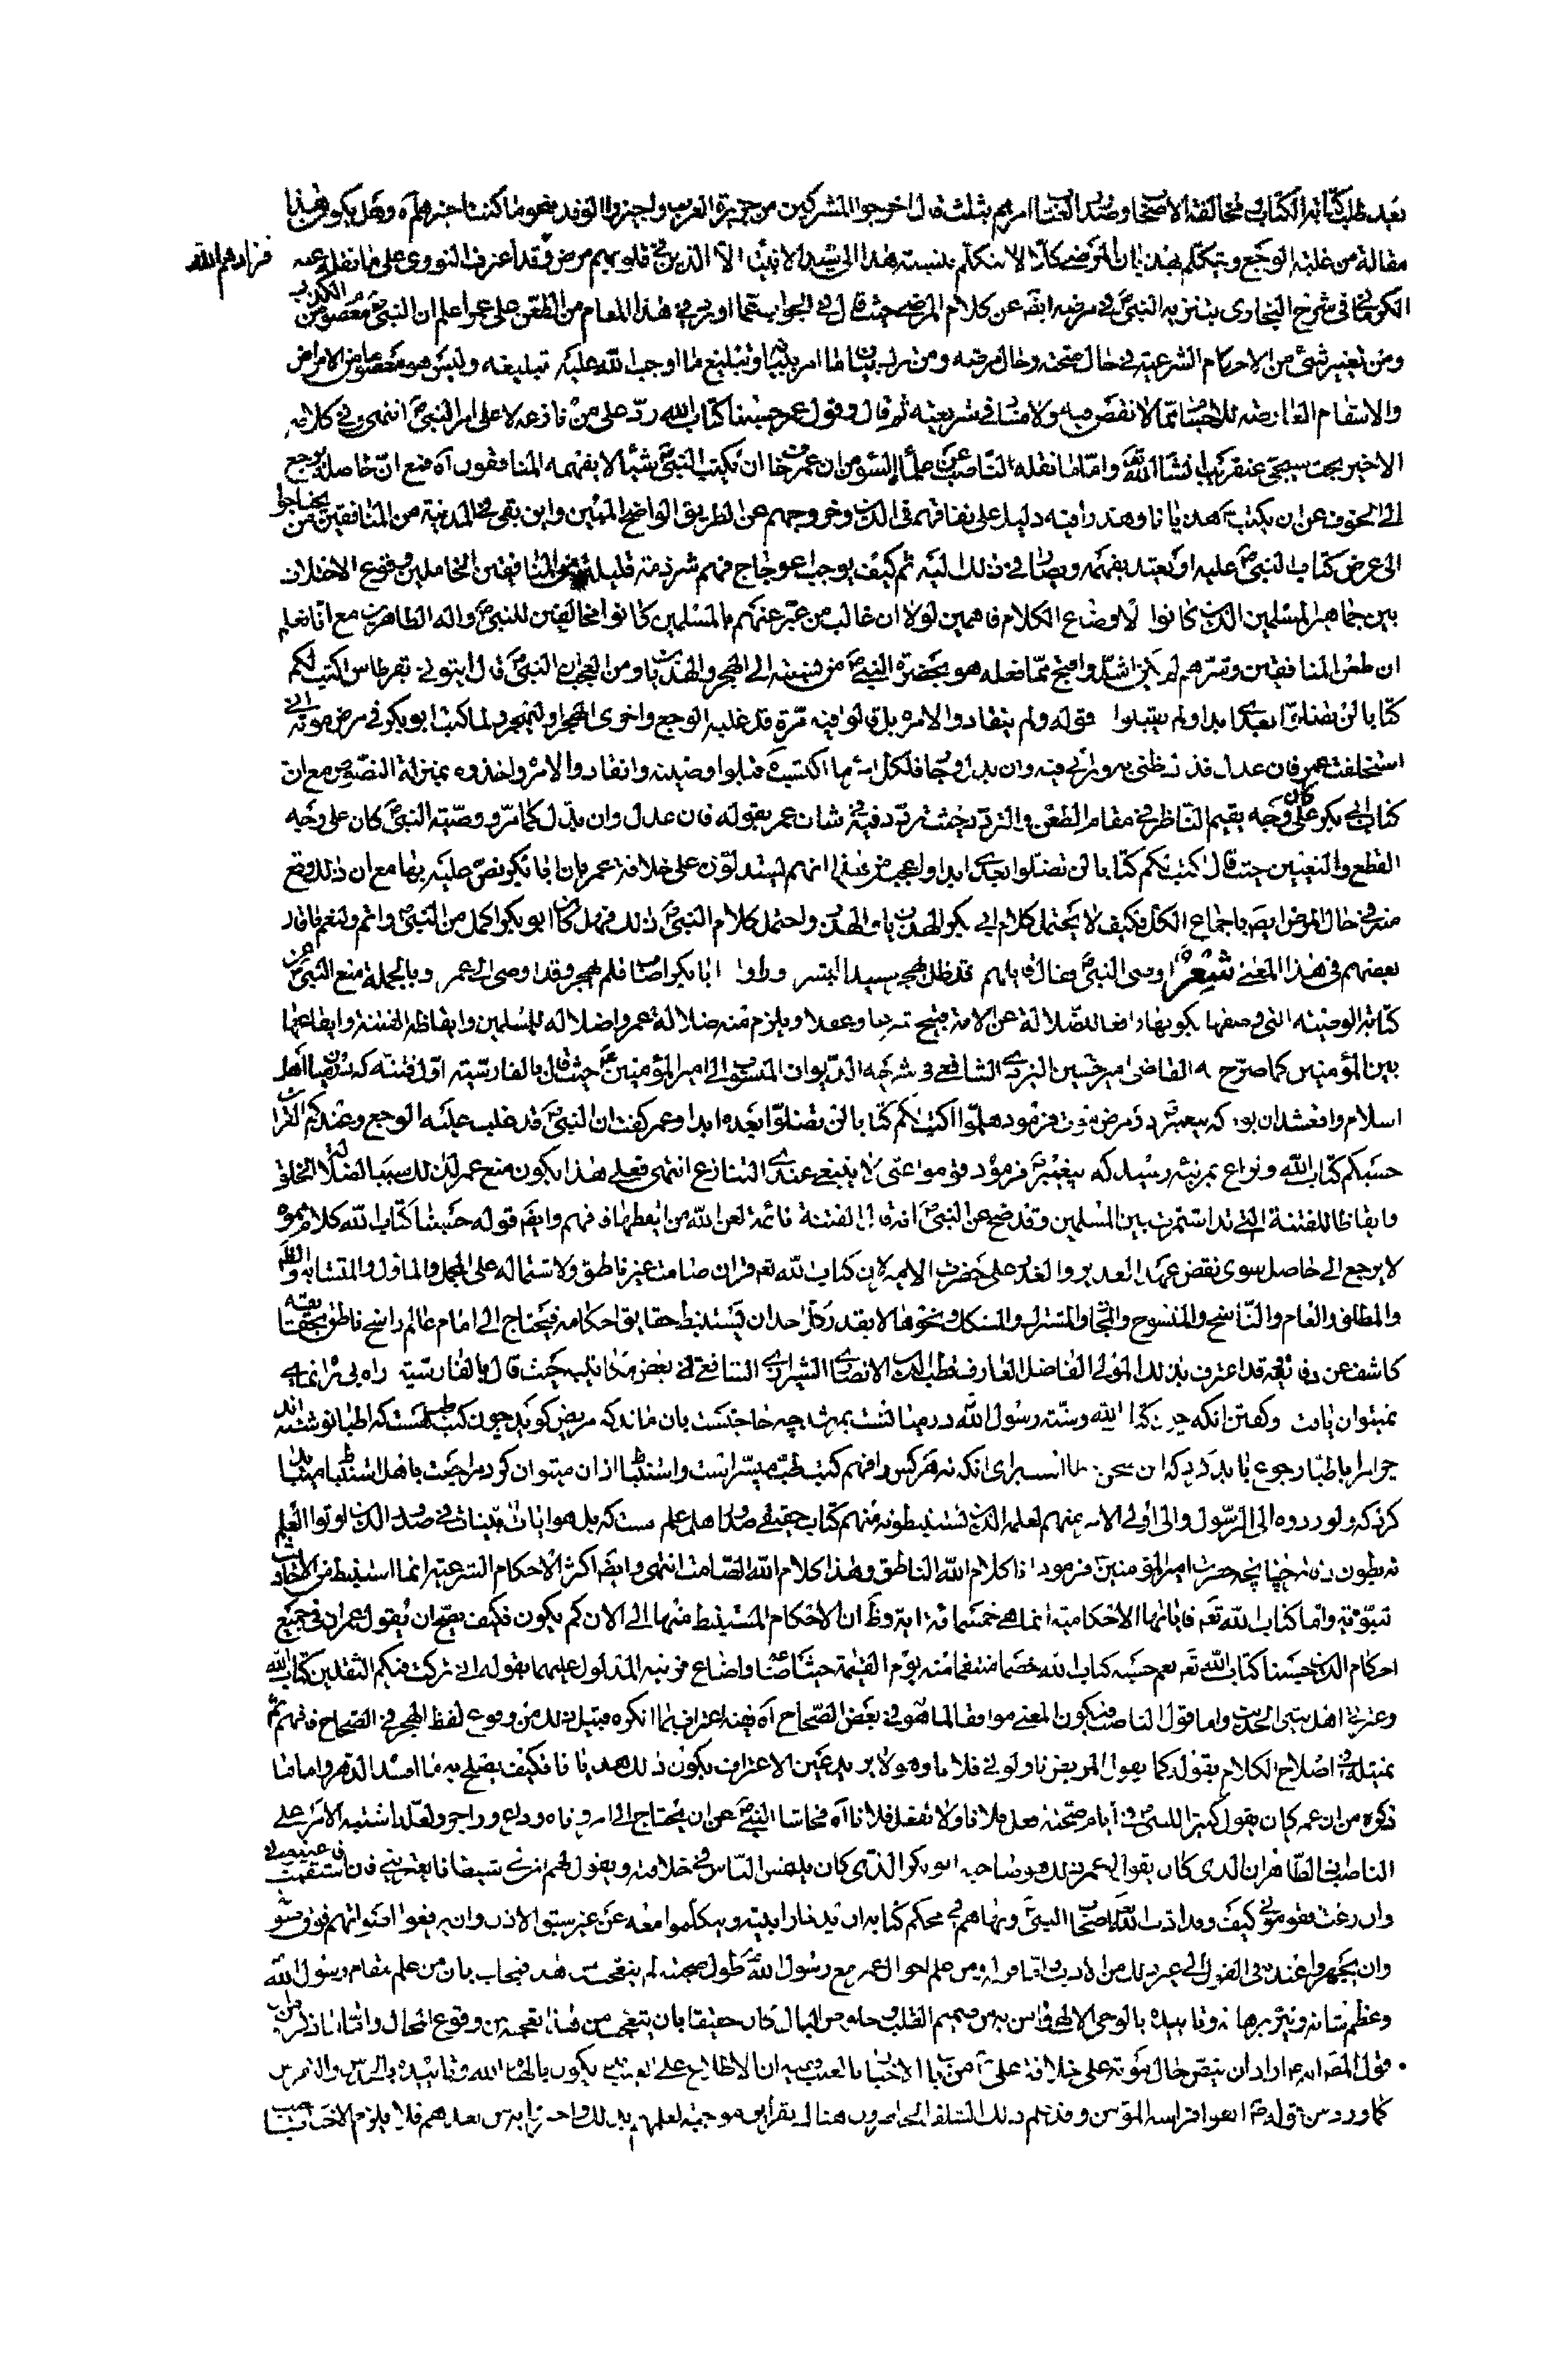 بعد طلب كتابة الكتاب و مخالفة الاصحاب وصدّ العتاب امرهم بثلث قال اخرجوا المشركين من جزيرة العرب واجيزوا الوفد بنحو ما كنت اجيزهم آه وهل يكون هذا
مقالة من غلبه الوجع ويتكلّم بهذيان المرضى كلّا لا يتكلم بنسبته هذا الى سيد الانبياء الّا الذين في قلوبهم مرض وقد اعترف النووى على ما نقله عنه
فزادهم الله
الكرمانى فى شرح البخارى بتنزيه النبىّ ص فى مرضه ايضا عن كلام المرضى حيث قال فى الجواب عمّا اورد فى هذا المقام من الطعن على عمر اعلم ان النبىّ ص معصوم من الكذب
ومن تغيير شئ من الاحكام الشرعية فى حال صحته وحال مرضه ومن ترك بيان ما امر ببيانه وتبليغ ما اوجب الله عليه تبليغه وليس هو معصوما من الامراض
والاسقام العارضة للاجسام ممّا لا نقص فيه ولا فساد فى شريعته ثم قال وقول عمر حسبنا كتاب الله ردّ على من نازعه لا على امر النبىّ ص انتهى وفى كلامه
الاخير بحث سيجئ عنقريب انشاء الله تعالى وامّا ما نقله الناصب عن علماء السّنة من ان عمر خاف ان يكتب النبىّ ص شيئا لا يفهمه المنافقون آه فمع انّ حاصله يرجع
الى الخوف عن ان يكتب هذيانا وهذرا فيه دليل على نفاقهم فى الدين وخروجهم عن الطريق الواضح المبين واين بقى فى المدينة من المنافقين من يحتاجوا
الى عرض كتاب النبىّ ص عليه او يعتد بفهمه وبصارته فى ذلك ليته ثم كيف يوجب اعوجاج فهم شرذمة قليلة من المنافقين الخاملين وقوع الاختلاف
بين جماهير المسلمين الذين كانوا لاوضاع الكلام فاهمين لولا ان غالب من عبّر عنهم بالمسلمين كانوا مخالفين للنبىّ ص وآله الطاهرين مع انّا نعلم
ان طعن المنافقين وتمرّدهم لم يكن اشدّ واقبح ممّا فعله هو بحضرة النبىّ ص من نسبته الى الهجر والهذيان ومن العجب ان النبىّ ص قال ايتونى بقرطاس اكتب لكم
كتابا لن تضلّوا بعدى ابدا ولم يقبلوا قوله ولم ينقادوا لامره بل قالوا فيه مرّة قد غلبه الوجع واخرى اهجر او ليهجر ولما كتب ابو بكر فى مرض موته انى
استخلفت عمر فان عدل فذلك ظنّى به ورأيى فيه وان بدل وجار فلكل امرئ ما اكتسب قبلوا وصيته وانقادوا لامره واخذوه بمنزلة النصوص مع ان
كتاب ابى بكر كان على وجه يقيم الناظر فى مقام الطعن والتردّد حيث تردّد فيه فى شان عمر بقوله فان عدل وان بدّل كما مرّ ووصيّة النبىّ ص كان على وجه
القطع واليقين حيث قال اكتب لكم كتابا لن تضلّوا بعدى ابدا واعجب من هذا انهم يستدلّون على خلافة عمر بان ابا بكر نصّ عليه بها مع ان ذلك وقع
منه فى حال المرض ايضا باجماع الكل فكيف لا يحتمل كلام ابى بكر الهذيان واحتمل كلام النبىّ ص ذلك فهل كان ابو بكر اكمل من النبىّ ص واتم ولنعم ما قال
بعضهم فى هذا المعنى شعر اوصى النبىّ فقال قائلهم قد ظل يهجر سيد البشر ورأوا ابا بكر اصاب فلم يهجر وقد اوصى الى عمر وبالجملة منع النبىّ ص من
كتابة الوصية التى وصفها بكونها دافعا للضّلالة عن الامة قبيح شرعا وعقلا ويلزم منه ضلالة عمر واضلاله للمسلمين وايقاظه الفتنة وايقاعها
بين المؤمنين كما صرّح به القاضى امير حسين اليزدى الشافعى فى شرحه الديوان المنسوب الى امير المؤمنين ع حيث قال بالفارسيّة اوّل فتنه كه در ميان اهل
اسلام واقع شد ان بود كه پيغمبر ص در مرض موت فرمود هلمّوا اكتب لكم كتابا لن تضلّوا بعده ابدا وعمر كفت ان النبىّ ص قد غلب عليه الوجع وعندكم القرآن
حسبكم كتاب الله و نزاع بمرتبه رسيد كه پيغمبر ص فرمود قوموا عنّى لا ينبغى عندى التنازع انتهى فعلى هذا يكون منع عمر لذلك سببا لضلالة الخلق
وايقاظا للفتنة التى قد استمرت بين المسلمين وقد صح عن النبىّ ص انه قال الفتنة نائمة لعن الله من ايقظها فافهم وايضا قوله حسبنا كتاب الله كلام مموّه
لا يرجع الى حاصل سوى نقض عهد الغدير والغدر على حضرت الامير لان كتاب الله تعم قران صامت غير ناطق ولاشتماله على المجمل والماول والمتشابه والظاهر
والمطلق والعام والناسخ والمنسوخ والمجاز والمشترك والمشكل ونحوها لا يقدر كل احد ان يستنبط حقايق احكامه فيحتاج الى امام عالم راسخ ناطق بحقايقه
كاشف عن دقائقه قد اعترف بذلك المولى الفاضل العارف قطب الدين الانصارى الشيرازى الشافعى فى بعض مكاتيبه حيث قال بالفارسية راه بى راهنمائى
نميتوان يافت وكفتن انكه چون كتاب الله وسنّت رسول الله در ميان است بمرشد چه حاجتست بان ماند كه مريض كويد چون كتب طب هست كه اطبا نوشته اند
چرا باطبا رجوع بايد كرد كه اين سخن خطا است براى انكه نه هر كس را فهم كتب طب ميسّر است واستنباط از ان ميتوان كرد مراجعت باهل استنباط ميبايد
كرد كه ولو ردوه الى الرّسول والى اولى الامر منهم لعلمه الذين يستنبطونه منهم كتاب حقيقى صدور اهل علم است كه بل هو ايات بيّنات فى صدور الذين اوتوا العلم
نه بطون دفاتر چنانچه حضرت امير المؤمنين فرمود انا كلام الله الناطق وهذا كلام الله الصّامت انتهى وايضا اكثر الاحكام الشرعية انما استنبط من الاحاديث
النبويّة واما كتاب الله تعم فاياتها الاحكامية انما هى خمسمائة اية وظ ان الاحكام المستنبط منها الى الان كم يكون فكيف يصحّ ان يقول عمر ان فى جميع
احكام الدين حسبنا كتاب الله تعم نعم حسبه كتاب الله خصما منتقما منه يوم القيمة حيث اضاعه واضاع قرينه المدلول عليهما بقوله انى تركت فيكم الثقلين كتاب الله
وعترتى اهل بيتى الحديث واما قول الناصب فيكون المعنى موافقا لما هو فى بعض الصّحاح آه ففيه اعتراف بما انكره قبيل ذلك من وقوع لفظ الهجر فى الصّحاح فافهم ثم
تمثيله فى اصلاح الكلام بقوله كما يقول المريض ناولونى فلانا وهو لا يريد عين الاعتراف بكون ذلك هذيانا فكيف يصلح به ما افسد الدهر واما ما
ذكره من ان عمر كان يقول كثيرا للنبىّ ص فى ايام صحّته افعل فلانا ولا تفعل فلانا آه فحاشا النبىّ ص عن ان يحتاج الى امر وناه ورادع وزاجر ولعلّه اشتبه الامر على
الناصب فى الظاهر ان الذى كان يقول له عمر ذلك هو صاحبه ابو بكر الذى كان يلعنس الناس فى خلافته ويقول لهم ان لى شيطانا يعترينى فان استقمت فاعينونى
وان زغت فقومونى كيف وقد ادّب الله تعالى اصحاب النبىّ ونهاهم فى محكم كتابه ان يدخلوا بيته ويتكلّموا معه عن غير سبق الاذن وان يرفعوا اصواتهم فوق صوته
وان يجهروا عنده فى القول الى غير ذلك من الاداب وامّا قوله ومن علم احوال عمر مع رسول الله ص طول صحبته لم يتعجّب من هذا فيجاب بان من علم مقام رسول الله
وعظم شانه ونيّر برهانه وتاييده بالوحى الالهى كان حقيقا بان يتعجب من هذا تعجبه من وقوع المحال واما ما ذكره من ان
قول المصنف انه اراد ان ينص حال موته على خلافة علىّ ع من باب الاخبار بالغيب ففيه ان الاطلاع على الغيب يكون بالهام الله وتاييده والحدس والتفرس
كما ورد من قوله ص اتقوا فراسة المؤمن وقد علم ذلك السّلف الحاضرون هنالك بقراين موجبة لعلمهم بذلك واحد بعد واحد فلا يلزم الاخبار بالغيب